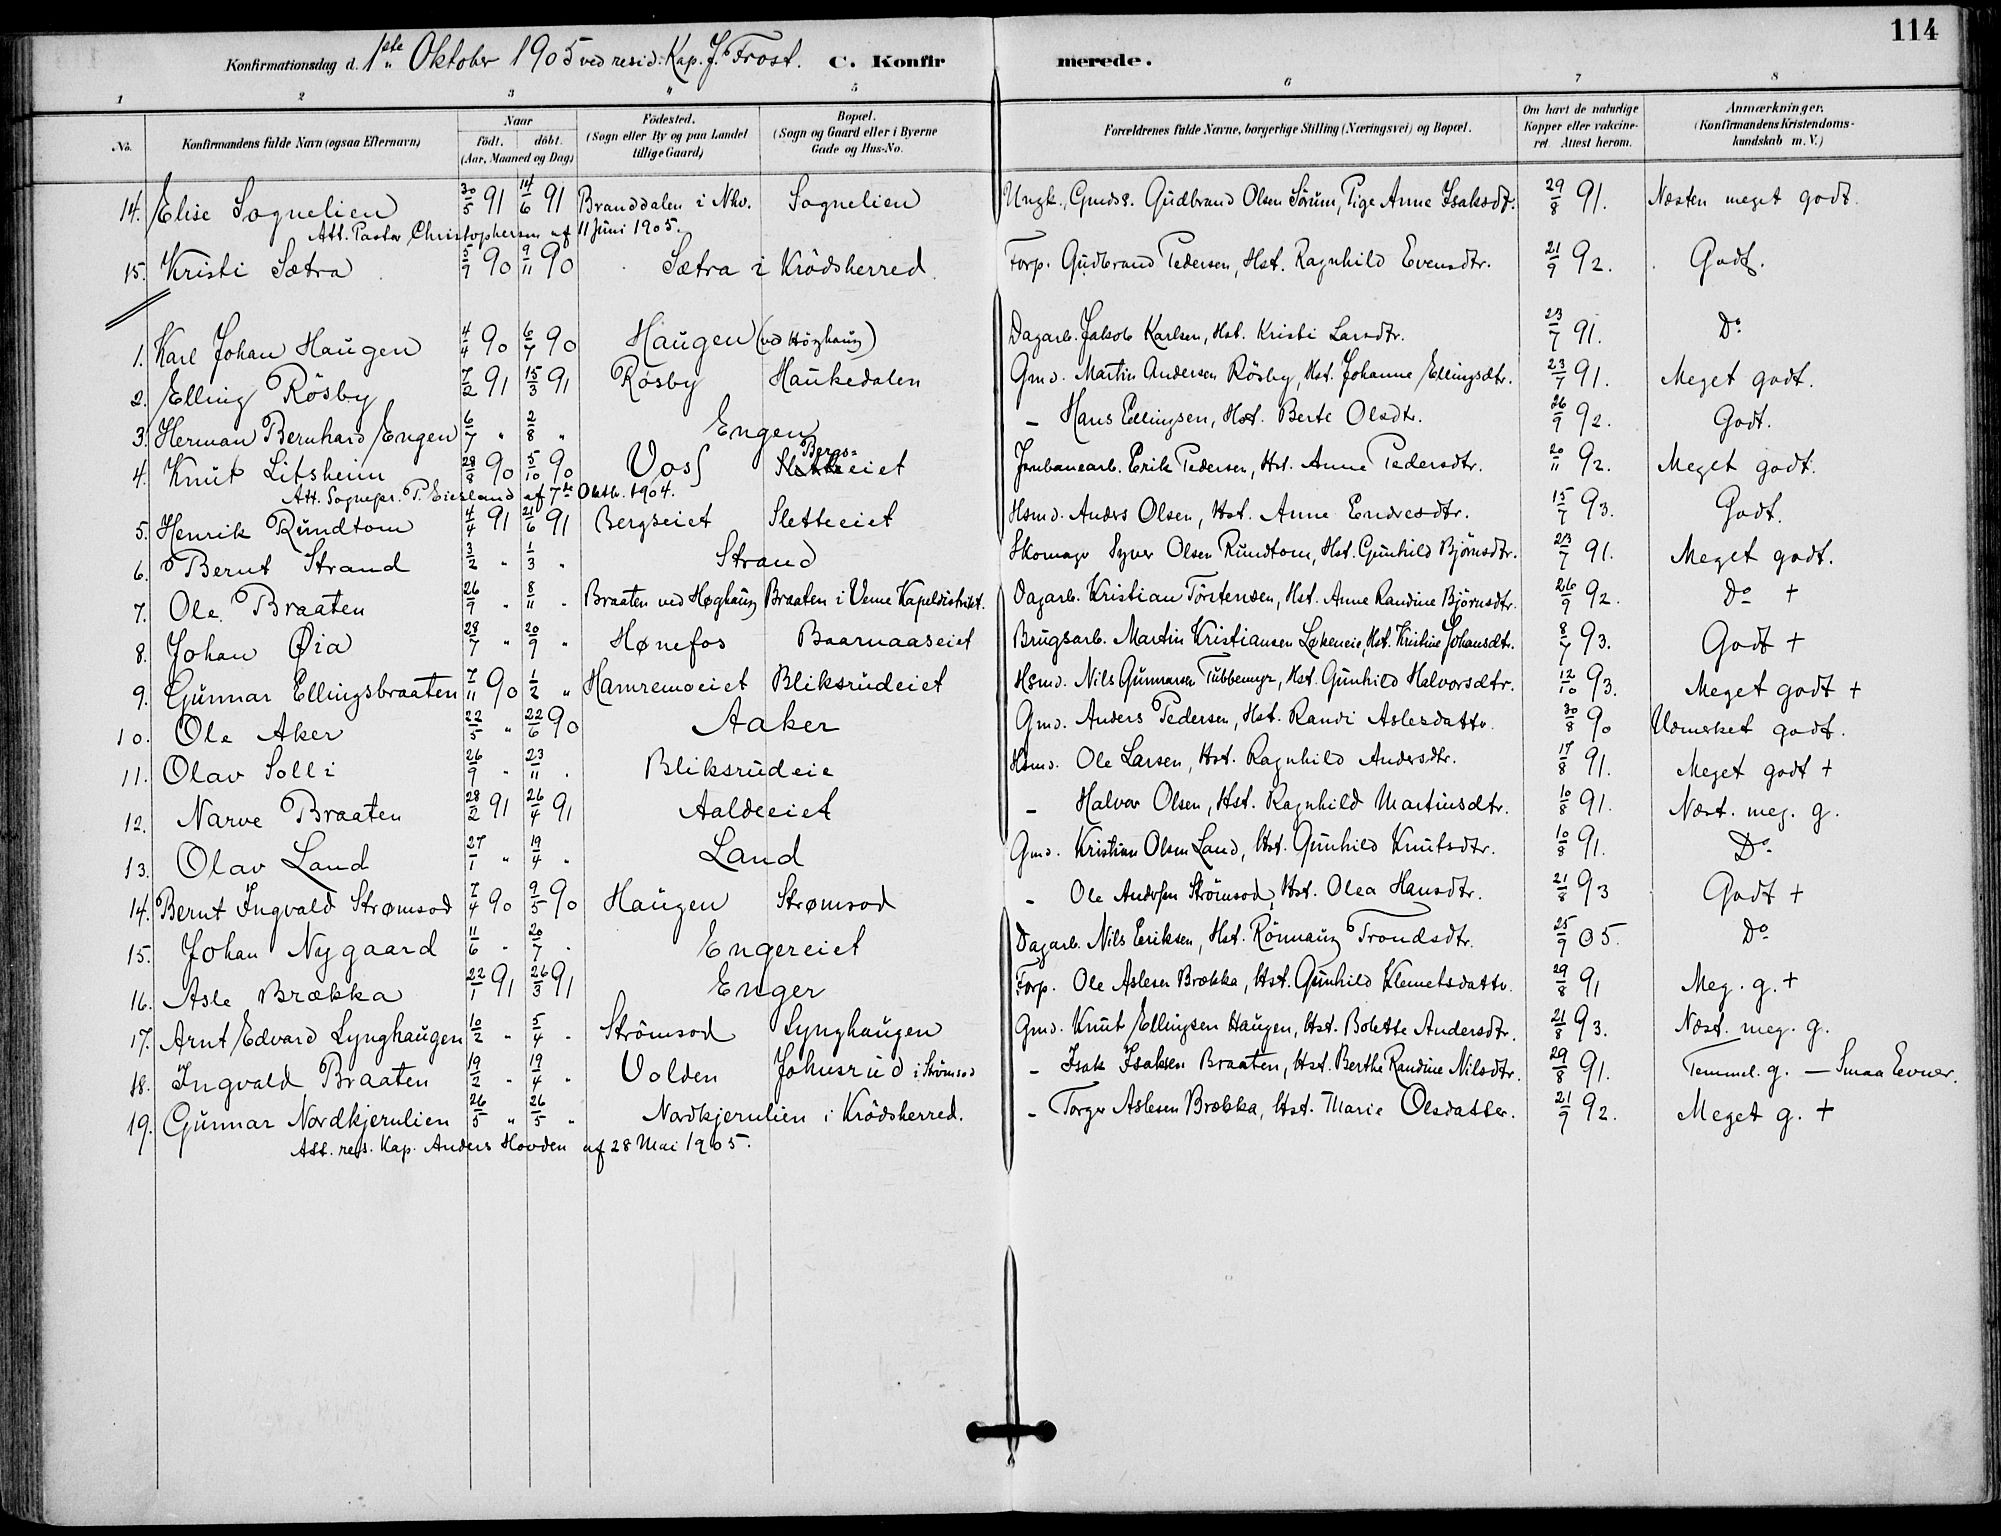 114
Konfirmationsdag d. 1ste Oktober 1905 ved resid. Kap. J. Frost. C. Konfirmerede.
1 2 3 " 5 6 7 8
No. Konfirmandens fulde Navn (ogsaa Efternavn) Naar født. døbt. (Aar, Maaned og Dag) Fødested. (Sogn eller By og paa Landet tillige Gaard) Bopæl. (Sogn og Gaard eller i Byerne Gade og Hus-No. Forældrenes fulde Navne, borgerlige Stilling (Næringsvei) og Bopæl. Om havt de naturlige Kopper eller vakcineret. Attest herom. Anmærkninger. (Konfirmandens Kristendomskundskab m. V.)
14. Elise Sognelien 30/5 91 14/6 91 Branddalen i Nkv. Sognelien Ungk., Gmds. Gudbrand Olsen Sørum, Pige Anne Isaksdt. 29/8 91. Næsten meget godt.
Att. Pastor Christophersen af 11 Juni 1905.
15. Kristi Sætra 5/9 90 9/11 90 Sætra i Krødsherred Forp. Gudbrand Pedersen, Hst. Ragnhild Evensdtr. 21/9 92. Godt.
1. Karl Johan Haugen 4/4 90 6/7 90 Haugen (ved Høghaug) Dagarb. Jakob Karlsen, Hst. Kristi Larsdtr. 23/7 91. Do
2. Elling Røsby 7/2 91 15/3 91 Røsby Haukedalen Gmd. Martin Andersen Røsby, Hst. Johanne Ellingsdtr. 23/7 91. Meget godt.
3. Herman Bernhard Engen 6/7 " 2/8 " Engen – Hans Ellingsen, Hst. Berte Olsdtr. 26/9 92. Godt.
4. Knut Litsheim 28/8 90 5/10 90 Voss Slette Bergs-eiet Jernbanearb. Erik Pedersen, Hst. Anne Pedersdtr. 20/11 92. Meget godt.
Att. Sognepr. P. Eiesland af 7de Oktb. 1904.
5. Henrik Rundtom 4/4 91 21/6 91 Bergseiet Sletteeiet Hsmd. Anders Olsen, Hst. Anne Endresdtr. 15/7 93. Godt.
6. Bernt Strand 3/2 " 1/3 " Strand Skomagr Syver Olsen Rundtom, Hst. Gunhild Bjørnsdtr. 23/7 91. Meget godt.
7. Ole Braaten 26/9 " 8/11 " Braaten ved Høghaug Braaten i Veme Kapeldistrikt. Dagarb. Kristian Torstensen, Hst. Anne Randine Bjørnsdtr. 26/9 92. Do +
8. Johan Øia 28/7 " 20/9 " Hønefos Baarnaaseiet Brugsarb. Martin Kristiansen Løkeneie, Hst. Kristine Johansdtr. 8/7 93. Godt +
9. Gunnar Ellingsbraaten 7/11 90 1/2 " Hamremoeiet Bliksrudeiet Hsmd. Nils Gunnarsen Tubbemyr, Hst. Gunhild Halvorsdtr. 12/10 93. Meget godt +
10. Ole Aker 22/5 " 22/6 90 Aaker Gmd. Anders Pedersen, Hst. Randi Aslesdattr. 30/8 90 Udmerket godt.
11. Olav Solli 26/9 " 23/11 " Bliksrudeie Hsmd. Ole Larsen, Hst. Ragnhild Andersdtr. 17/8 91. Meget godt +
12. Narve Braaten 28/2 91 26/4 91 Aaldeeiet – Halvor Olsen, Hst. Ragnhild Martinsdtr. 10/8 91. Næst. meg. g.
13. Olav Land 27/1 " 19/4 " Land Gmd. Kristian Olsen Land, Hst. Gunhild Knutsdtr. 10/8 91. Do
14. Bernt Ingvald Strømsod 7/4 90 9/5 90 Haugen Strømsod – Ole Andersen Strømsod, Hst. Olea Hansdtr. 21/8 93 Godt +
15. Johan Nygaard 11/6 " 20/7 " Engereiet Dagarb. Nils Eriksen, Hst. Rønnaug Trondsdtr. 25/9 05. Do
16. Asle Brækka 22/1 91 26/3 91 Enger Forp. Ole Aslesen Brækka, Hst. Gunhild Klemetsdattr. 29/8 91 Meg. g. +
17. Arnt Edvard Lynghaugen 10/2 " 5/4 " Strømsod Lynghaugen Gmd. Knut Ellingsen Haugen, Hst. Bolette Andersdtr. 21/8 93. Næst. meg. g.
18. Ingvald Braaten 19/2 " 19/4 " Volden Johnsrud i Strømsod – Isak Isaksen Braaten, Hst. Berthe Randine Nilsdtr. 29/8 91. Temmel. g. – Smaa Evner.
19. Gunnar Nordkjernlien 26/5 " 26/5 " Nordkjernlien i Krødsherred. – Torger Aslesen Brækka, Hst. Marie Olsdatter. 21/9 92. Meget g. +
Att. res. Kap. Anders Hovden af 28 Mai 1905.